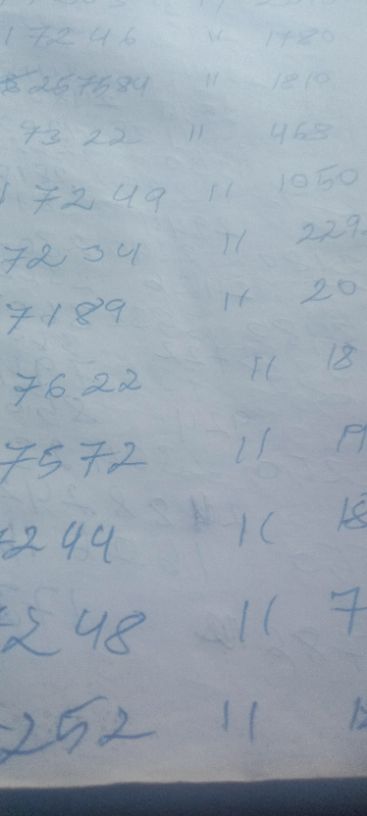 17246 " 1780
8257584 " 1810
7322 " 468
17249 " 1050
7234 " 229
7189 " 20
7622 " 18
7572 "
7244 " 18
7248 " 7
7252 "